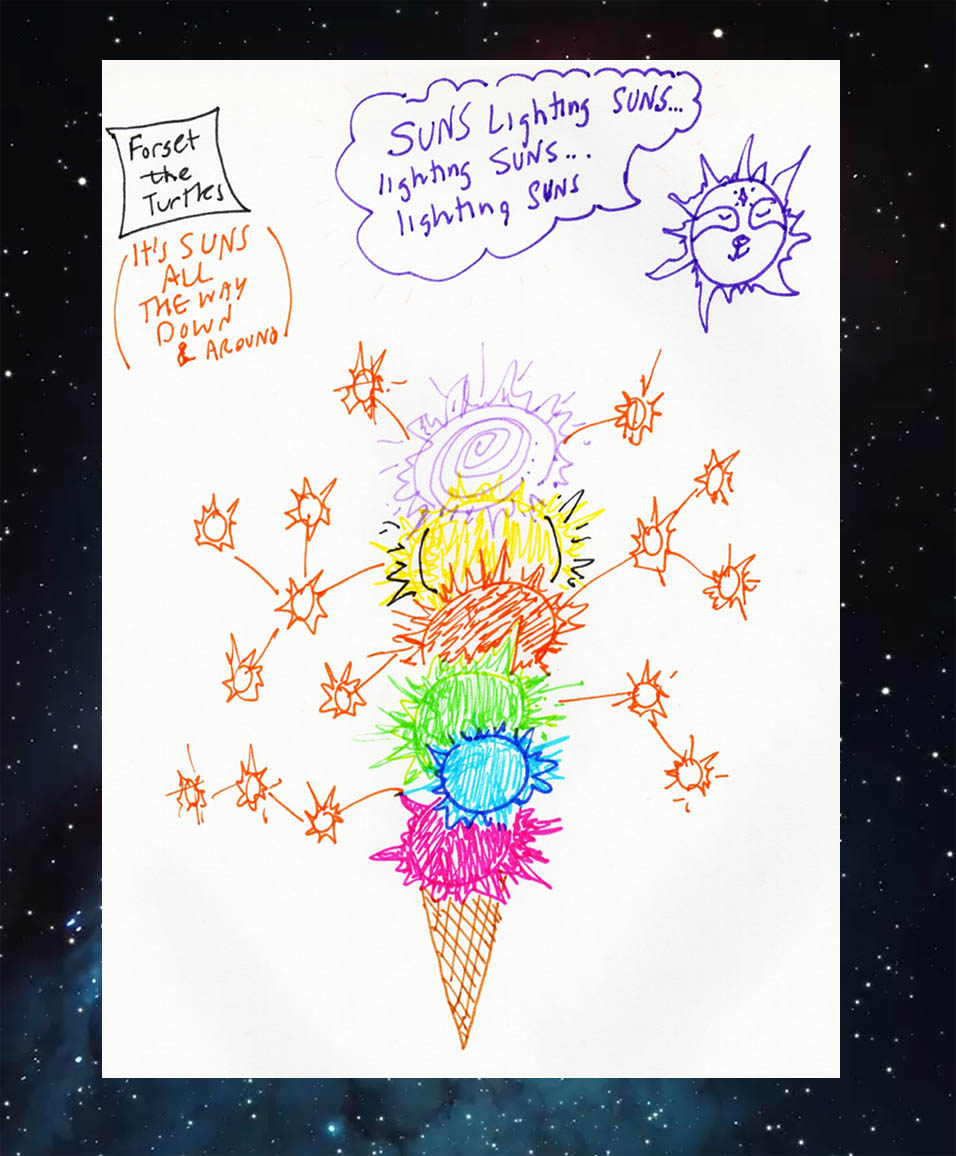 Forget
the
Turtles
(It's SUNS
ALL
THE WAY
DOWN
& AROUND)
SUNS Lighting SUNS...
lighting SUNS...
lighting SUNS